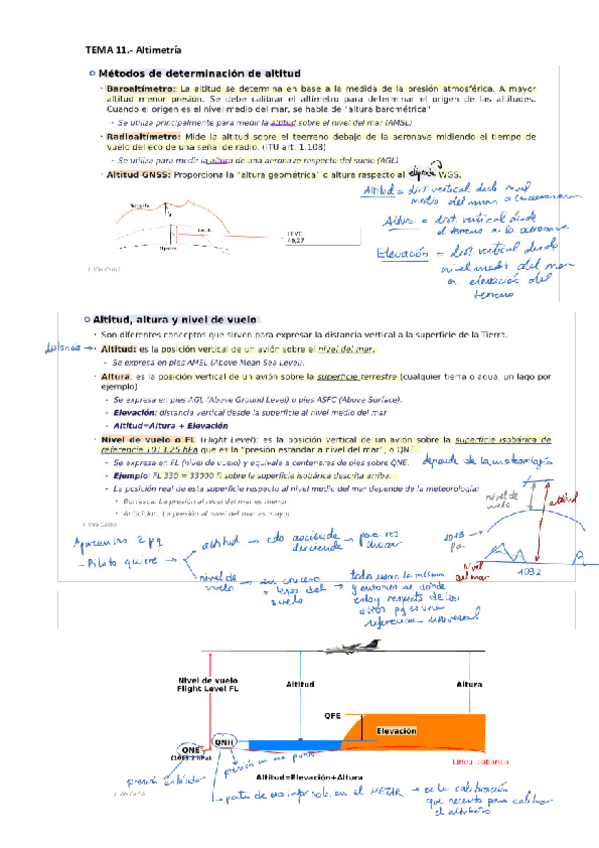 TEMA 11.- Altimetría
Métodos de determinación de altitud
Baroaltímetro: La altitud se determina en base a la medida de la presión atmosférica. A mayor
altitud menor presión. Se debe calibrar el altímetro para determinar el origen de las altitudes.
Cuando el origen es el nivel medio del mar, se habla de "altura barométrica"
- Se utiliza principalmente para medir la altitud sobre el nivel del mar (AMSL)
Radioaltímetro: Mide la altitud sobre el teerreno debajo de la aeronave midiendo el tiempo de
vuelo del eco de una señal de radio. (ITU art. 1.108)
- Se utiliza para medir la altura de una aeronave respecto del suelo (AGL)
Altitud GNSS: Proporciona la "altura geométrica" o altura respecto al elipsoide WGS.
Altitud = dist. vertical desde nivel
medio del mar a la aeronave
Altura = dist. vertical desde
el terreno a la aeronave
Elevación = dist. vertical desde
nivel medio del mar
a elevación del
terreno
49,27
Altitud, altura y nivel de vuelo
Son diferentes conceptos que sirven para expresar la distancia vertical a la superficie de la Tierra.
distancia → Altitud: es la posición vertical de un avión sobre el nivel del mar.
- Se expresa en pies AMSL (Above Mean Sea Level).
Altura: es la posición vertical de un avión sobre la superficie terrestre (cualquier tierra o agua, un lago por
ejemplo)
- Se expresa en pies AGL (Above Ground Level) o pies ASFC (Above Surface).
- Elevación: distancia vertical desde la superficie al nivel medio del mar
- Altitud=Altura + Elevación
Nivel de vuelo o FL (Flight Level): es la posición vertical de un avión sobre la superficie isobárica de
referencia 1013,25 hPa que es la "presión estándar a nivel del mar", o QNE.
- Se expresa en FL (nivel de vuelo) y equivale a centenares de pies sobre QNE.
depende de la meteorología
- Ejemplo: FL 330 = 33000 ft sobre la superficie isobárica descrita arriba.
- La posición real de esta superficie respecto al nivel medio del mar depende de la meteorología:
Borrasca: La presión al nivel del mar es menor
Anticiclón: La presión al nivel del mar es mayor
nivel de
vuelo
altitud
1013
Nivel
del mar
1032
- Piloto quiere
altitud → cdo asciende
desciende → para no
chocar
nivel de
vuelo → en crucero
+ lejos del
suelo → todos usan la misma
y entonces se donde
estoy respecto de los
otros pq es una
referencia universal
Nivel de vuelo
Flight Level FL
Altitud
Altura
QFE
Elevación
QNE
(1013.2 hPa)
QNH
Línea isobárica
presión estándar
presión en un punto
Altitud=Elevación+Altura
parte de esa info sale en el METAR → es la calibración
que necesito para calibrar
el altímetro